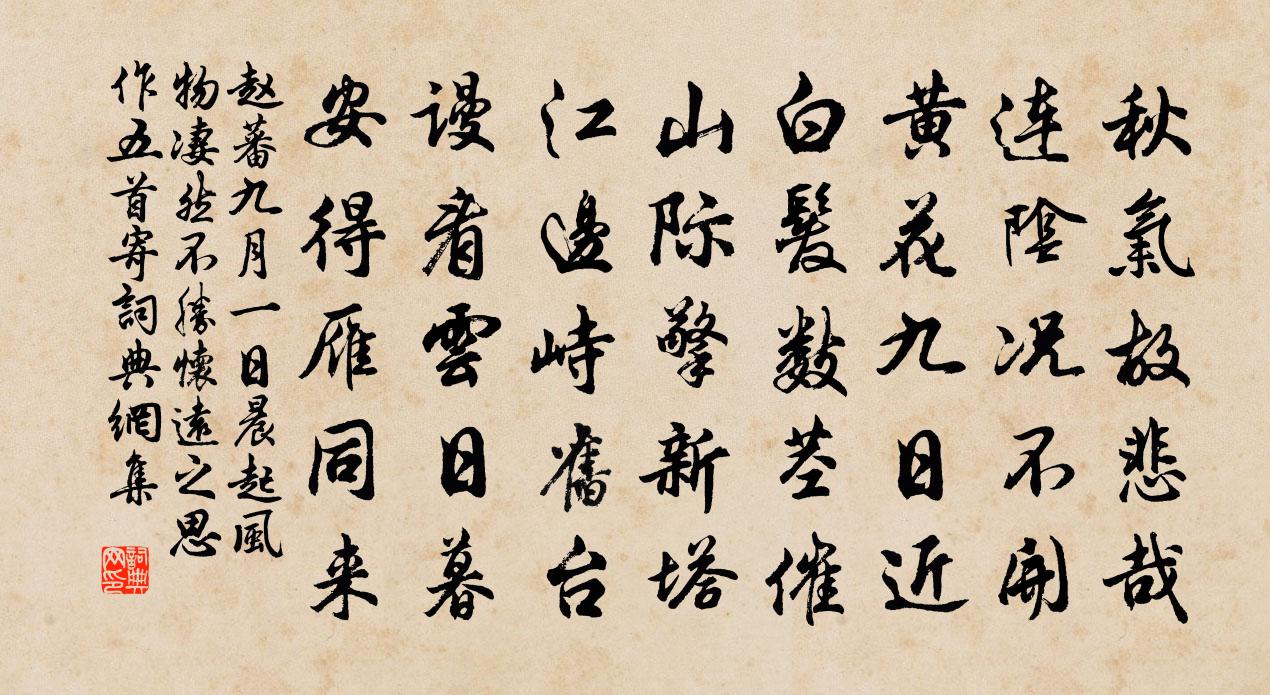 秋氣故悲哉
連陰况不開
黄花九日近
白髮數莖催
山際擎新塔
江邊峙舊台
謾看雲日暮
安得雁同来
赵蕃九月一日晨起風
物凄然不勝懷遠之思
作五首寄詞典網集
詞典
网印